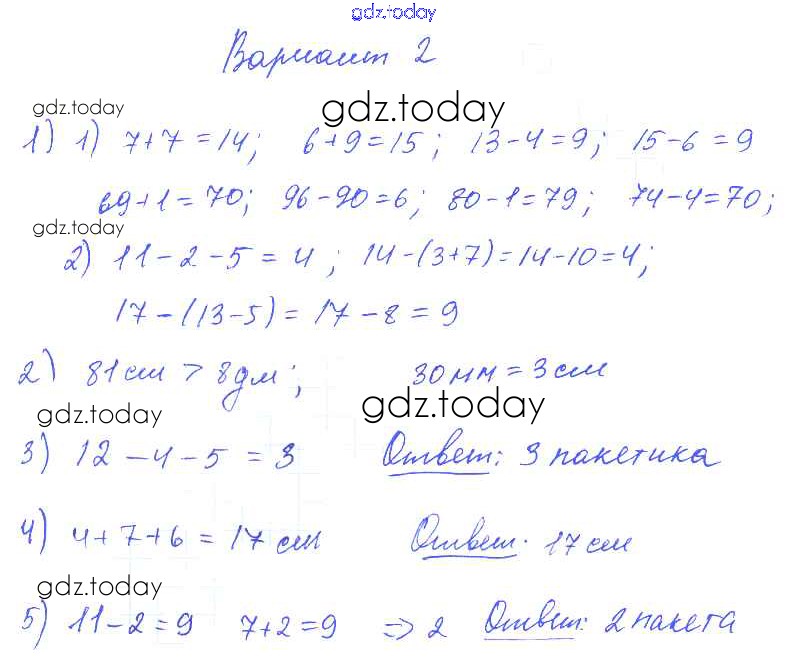 gdz.today
Вариант 2
gdz.today
gdz.today
1) 1) 7+7=14; 6+9=15; 13-4=9; 15-6=9
69+1=70; 96-90=6; 80-1=79; 74-4=70;
gdz.today
2) 11-2-5=4; 14-(3+7)=14-10=4;
17-(13-5)=17-8=9
2) 81см > 8дм; 30мм=3см
gdz.today
gdz.today
3) 12-4-5=3 Ответ: 3 пакетика
4) 4+7+6=17см Ответ. 17см
gdz.today
5) 11-2=9 7+2=9 => 2 Ответ: 2 пакета